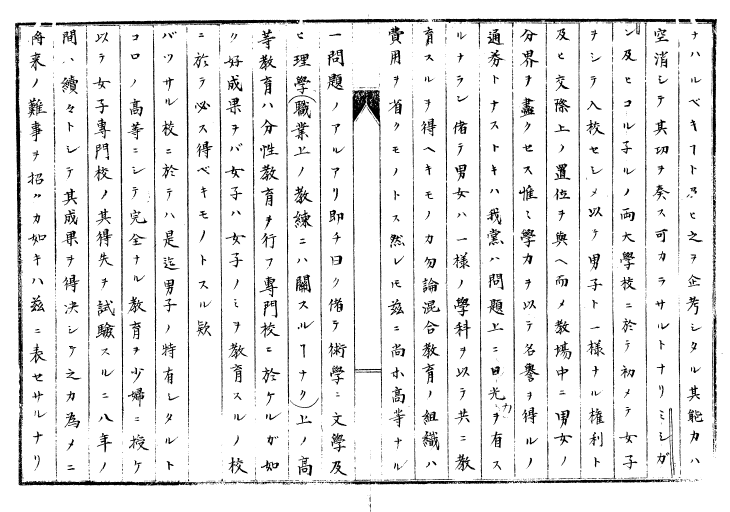 ナハルベキヿト思ヒ之ヲ企考シタル其能力ハ
空消シテ其功ヲ奏ス可カラサルトナリミシガ
ン及ヒコル子ルノ両大學校ニ於テ初メテ女子
ヲシテ入校セシメ以テ男子ト一様ナル權利ト
及ヒ交際上ノ置位ヲ與ヘ而メ教場中ニ男女ノ
分界ヲ畫クセス惟ミ學力ヲ以テ名譽ヲ得ルノ
通券トナストキハ我黨ハ問題上ニ日光ヲ有ス
ルナラン偖テ男女ハ一様ノ學科ヲ以テ共ニ教
育スルヲ得ヘキモノカ勿論混合教育ノ組織ハ
費用ヲ省クモノトス然レ𪜈茲ニ尚ホ高等ナル
一問題ノアルアリ即チ曰ク偖テ術學ニ文學及
ヒ理學(職業上ノ教練ニハ關スルヿナク)上ノ高
等教育ハ分性教育ヲ行フ專門校ニ於ケルガ如
ク好成果ヲバ女子ハ女子ノミヲ教育スルノ校
ニ於テ必ス得ベキモノトスル歟
バツサル校ニ於テハ是迄男子ノ特有シタルト
コロノ高等ニシテ完全ナル教育ヲ少婦ニ授ケ
以テ女子專門校ノ其得失ヲ試驗スルニ八年ノ
間ハ續々トシテ其成果ヲ得決シテ之カ為メニ
将来ノ難事ヲ招クカ如キハ茲ニ表セサルナリ